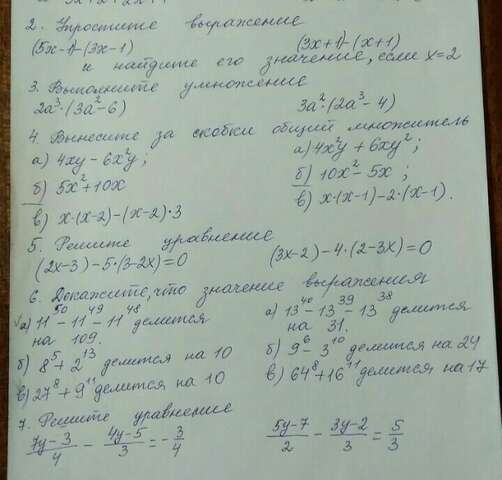 2. Упростите выражение
(5x-1)-(3x-1) (3x+1)-(x+1)
и найдите его значение, если x=2
3. Выполните умножение
2a³·(3a²-6) 3a²·(2a³-4)
4. Вынесите за скобки общий множитель
а) 4xy-6x²y; а) 4x²y+6xy²;
б) 5x²+10x б) 10x²-5x;
в) x·(x-2)-(x-2)·3 в) x·(x-1)-2·(x-1).
5. Решите уравнение
(2x-3)-5·(3-2x)=0 (3x-2)-4·(2-3x)=0
6. Докажите, что значение выражения
а) 11⁵⁰-11⁴⁹-11⁴⁸ делится а) 13⁴⁰-13³⁹-13³⁸ делится
на 109. на 31.
б) 8⁵+2¹³ делится на 10 б) 9⁶-3¹⁰ делится на 24
в) 27⁸+9¹¹ делится на 10 в) 64⁸+16¹¹ делится на 17
7. Решите уравнение
7y-3/4 - 4y-5/3 = -3/4 5y-7/2 - 3y-2/3 = 5/3